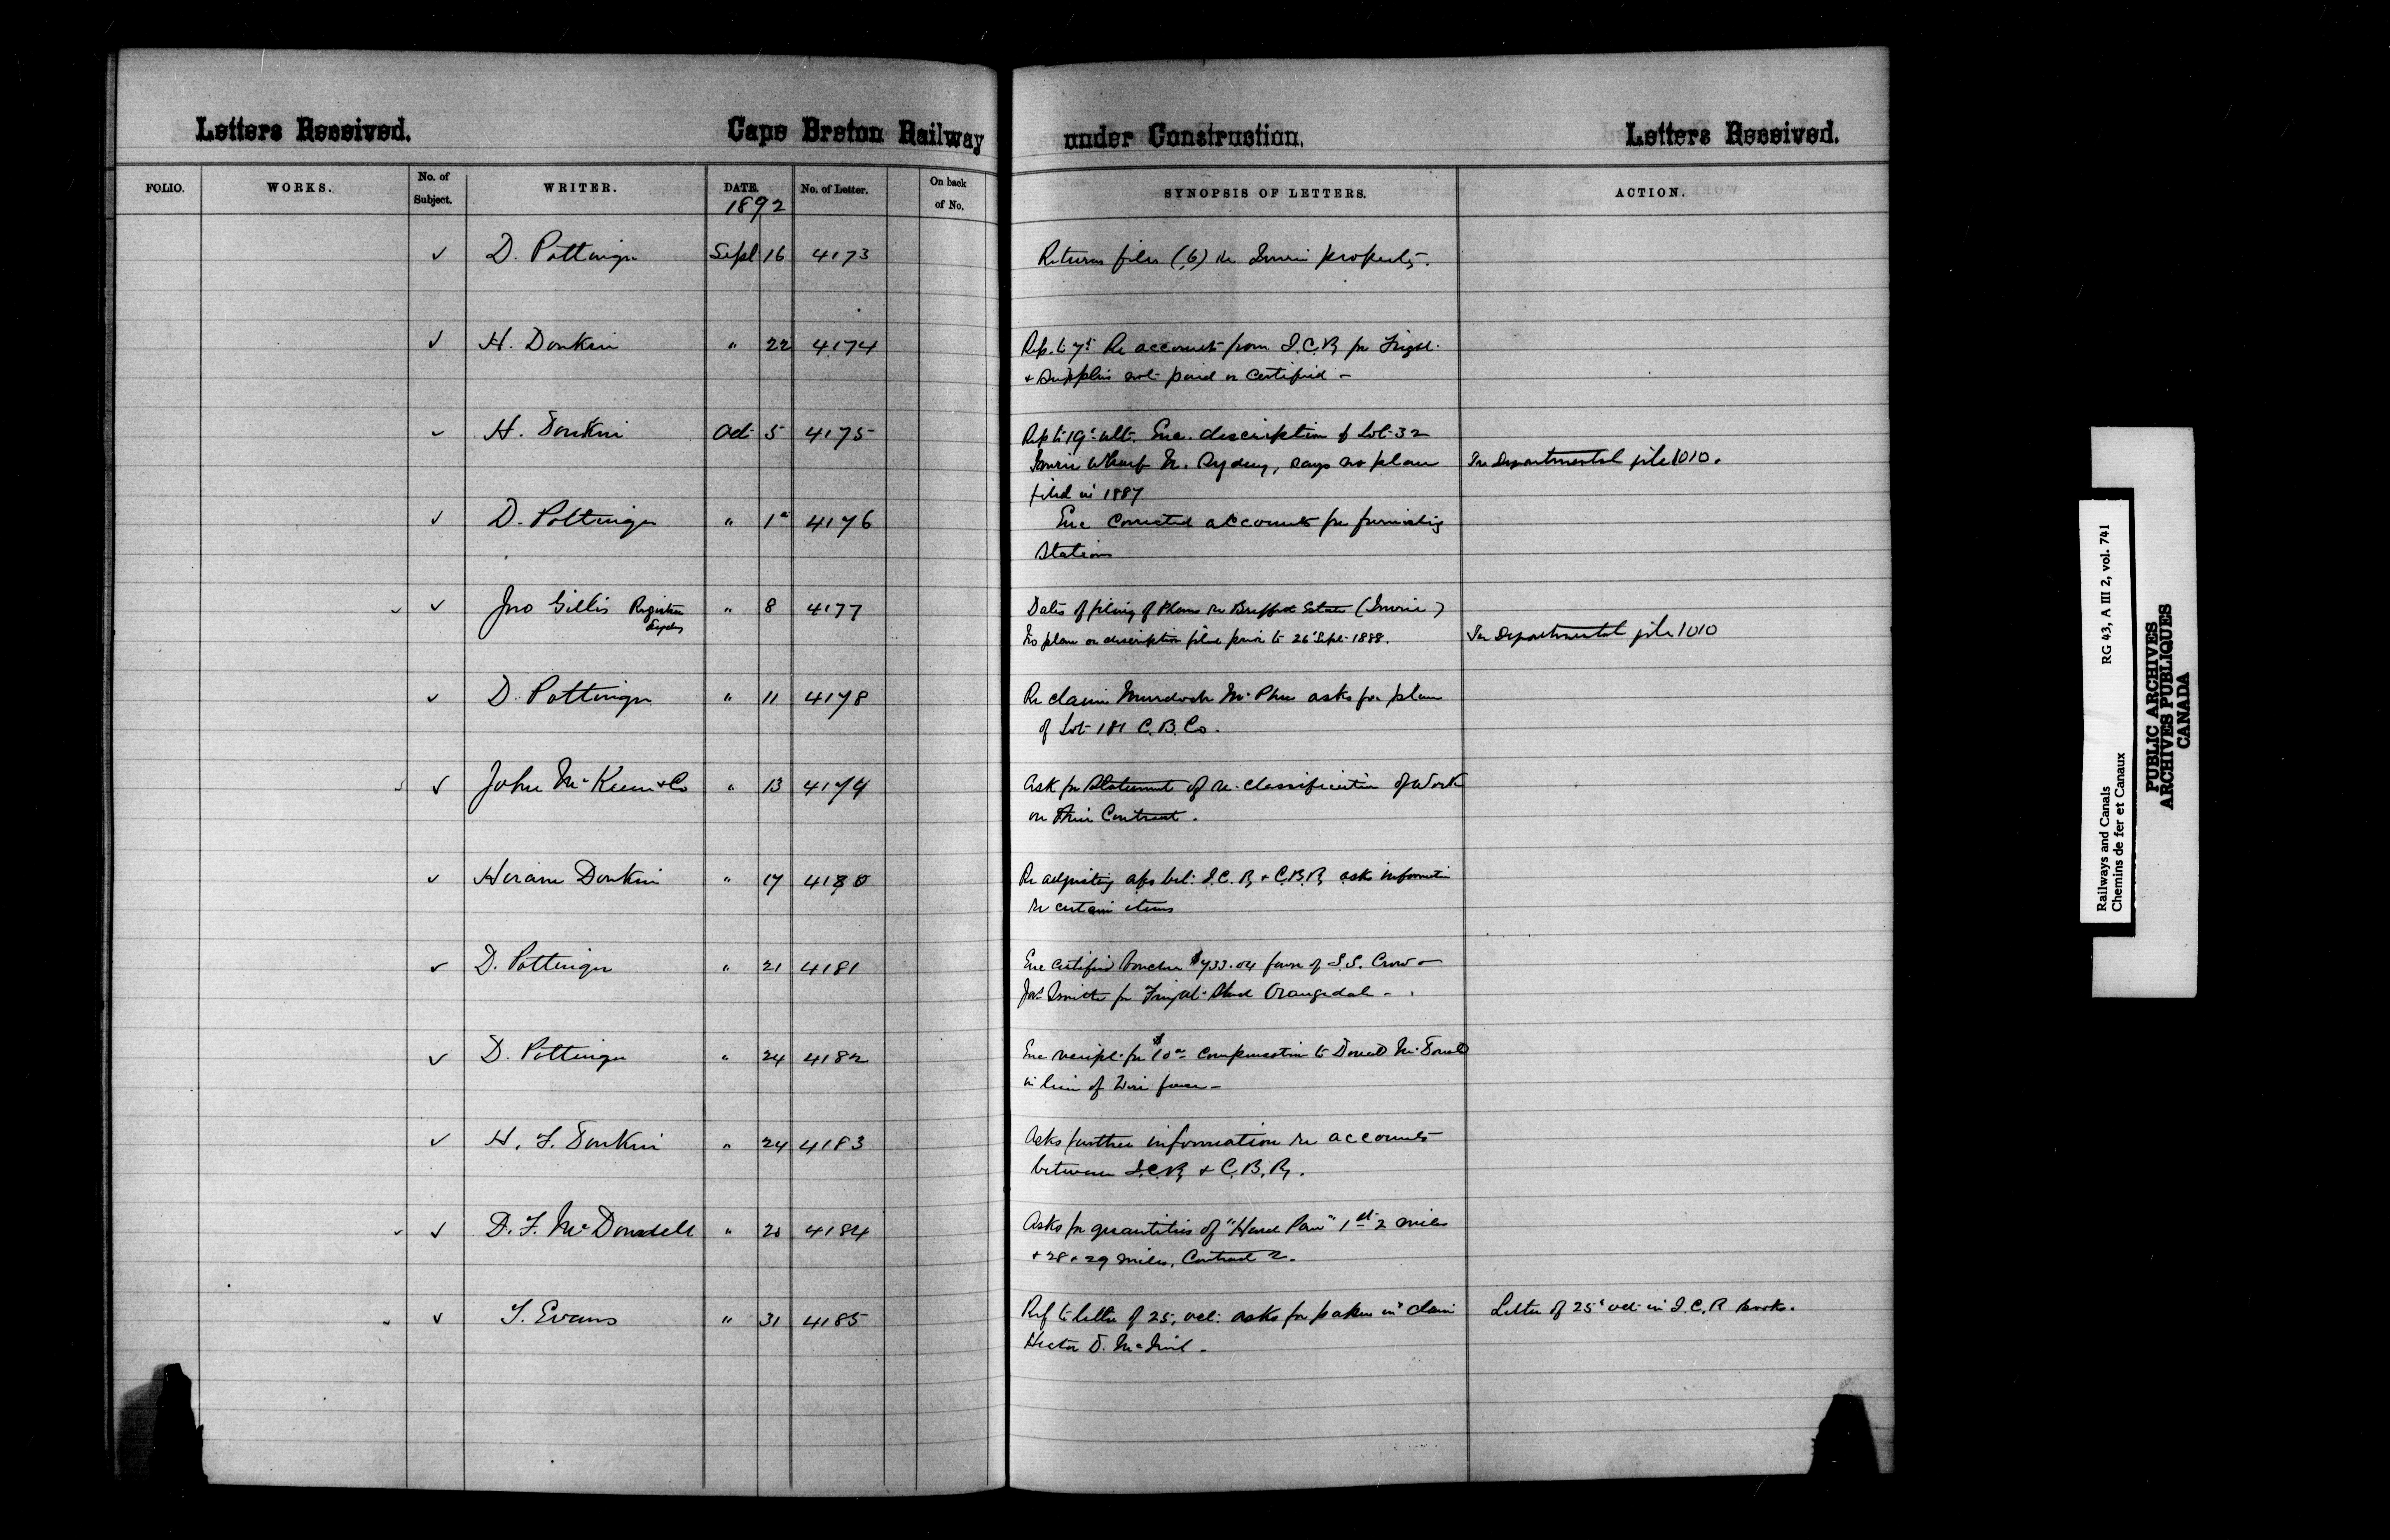 Letters Received. Cape Breton Railway under Construction. Letters Received.
FOLIO. WORKS. No. of Subject. WRITER. DATE. No. of Letter. On back of No. SYNOPSIS OF LETTERS. ACTION.
1892
✓ D. Pottinger Sept 16 4173 Returns files (6) re Imrie property.
✓ H. Donkin " 22 4174 Rep. to 7th Re accounts from I.C.R, for
& Supplies not paid or Certified –
✓ H. Donkin Oct 5 4175 Rep to 19th ult. Enc. description of Lot 32
Imrie Wharf N. Sydney, says no plan In Departmental file 1010.
filed in 1887
✓ D. Pottinger " 1st 4176 Enc Corrected accounts for furnishing
Stations
✓ ✓ Jno Gillis Registrar " 8 4177 Dates of filing of Plans re Estate (Imrie)
Sydney No plan or description filed prior to 26th Sept 1888. In Departmental file 1010
✓ D. Pottinger " 11 4178 Re claim Murdoch McPhee asks for plan
of Lot 181 C.B. Co.
✓ ✓ John McKeen & Co " 13 4179 Ask for Statement of re-classification of Work
on their Contract.
✓ Hiram Donkin " 17 4180 Re adjusting a/cs bet: I.C.R, & C.B.R, asks information
re certain items
✓ D. Pottinger " 21 4181 Enc Certified Voucher $733.04 favor of S.S. Crow
Smith for Freight Shed Orangedale –
✓ D. Pottinger " 24 4182 Enc receipt for $10 compensation to Donald McDonald
in lieu of Wire fence –
✓ H. F. Donkin " 24 4183 Asks further information re accounts
between I.C.R, & C.B.R,.
✓ ✓ D. F. McDonald " 20 4184 Asks for quantities of "Hard Pan" 1st 2 miles
& 28 & 29 miles, Contract 2.
✓ T. Evans " 31 4185 Ref to letter of 25th Oct: asks for papers in claim Letter of 25th Oct in I.C.R Books.
Hector D. McNeil –
Railways and Canals RG 43, A III 2, vol. 741
Chemins de fer et Canaux
PUBLIC ARCHIVES
ARCHIVES PUBLIQUES
CANADA